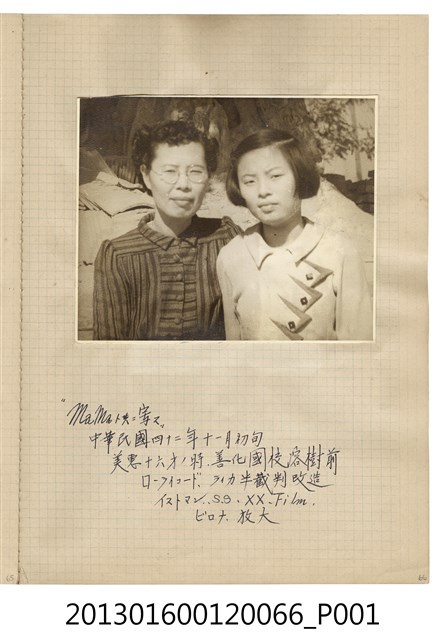 "MaMaト共ニ寫ス"
中華民國四十二年十一月初旬
美惠十六才ノ時、善化國校溶樹前
ローライコード、ライカ半截判改造
イストマン、S.S.XX.Film.
ビロナ、放大
65
66
201301600120066_P001